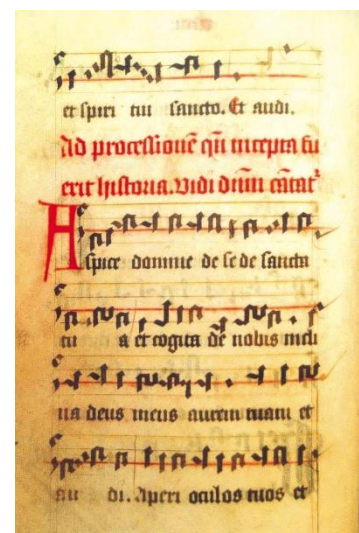 et spiri tui sancto. Et audi.
Ad processionē qn̄ incepta fu
erit historia. Vidi dnm̄ cantat᷑
Aspice domine de se de sancta
tu a et cogita de nobis incli
na deus meus aurem tuam et
au di. Aperi oculos tuos et